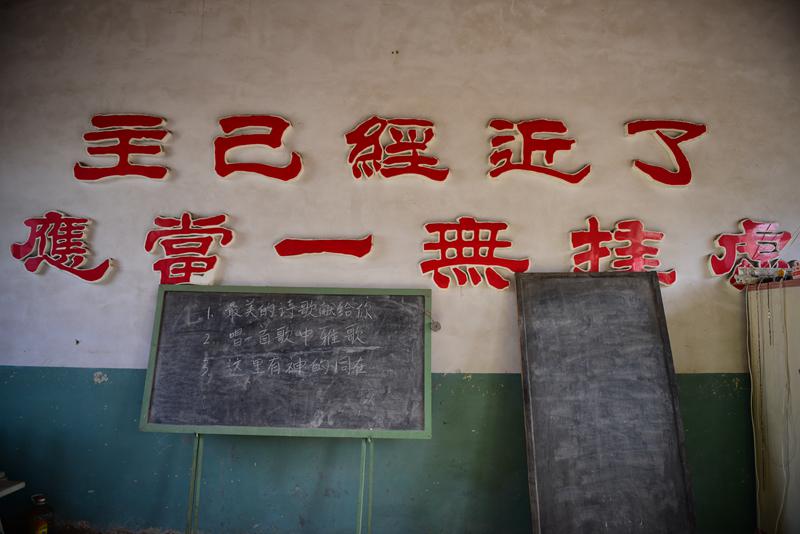 主己經近了
應當一無挂慮
1. 最美的诗歌献给你
2. 唱一首歌中雅歌
3. 这里有神的同在